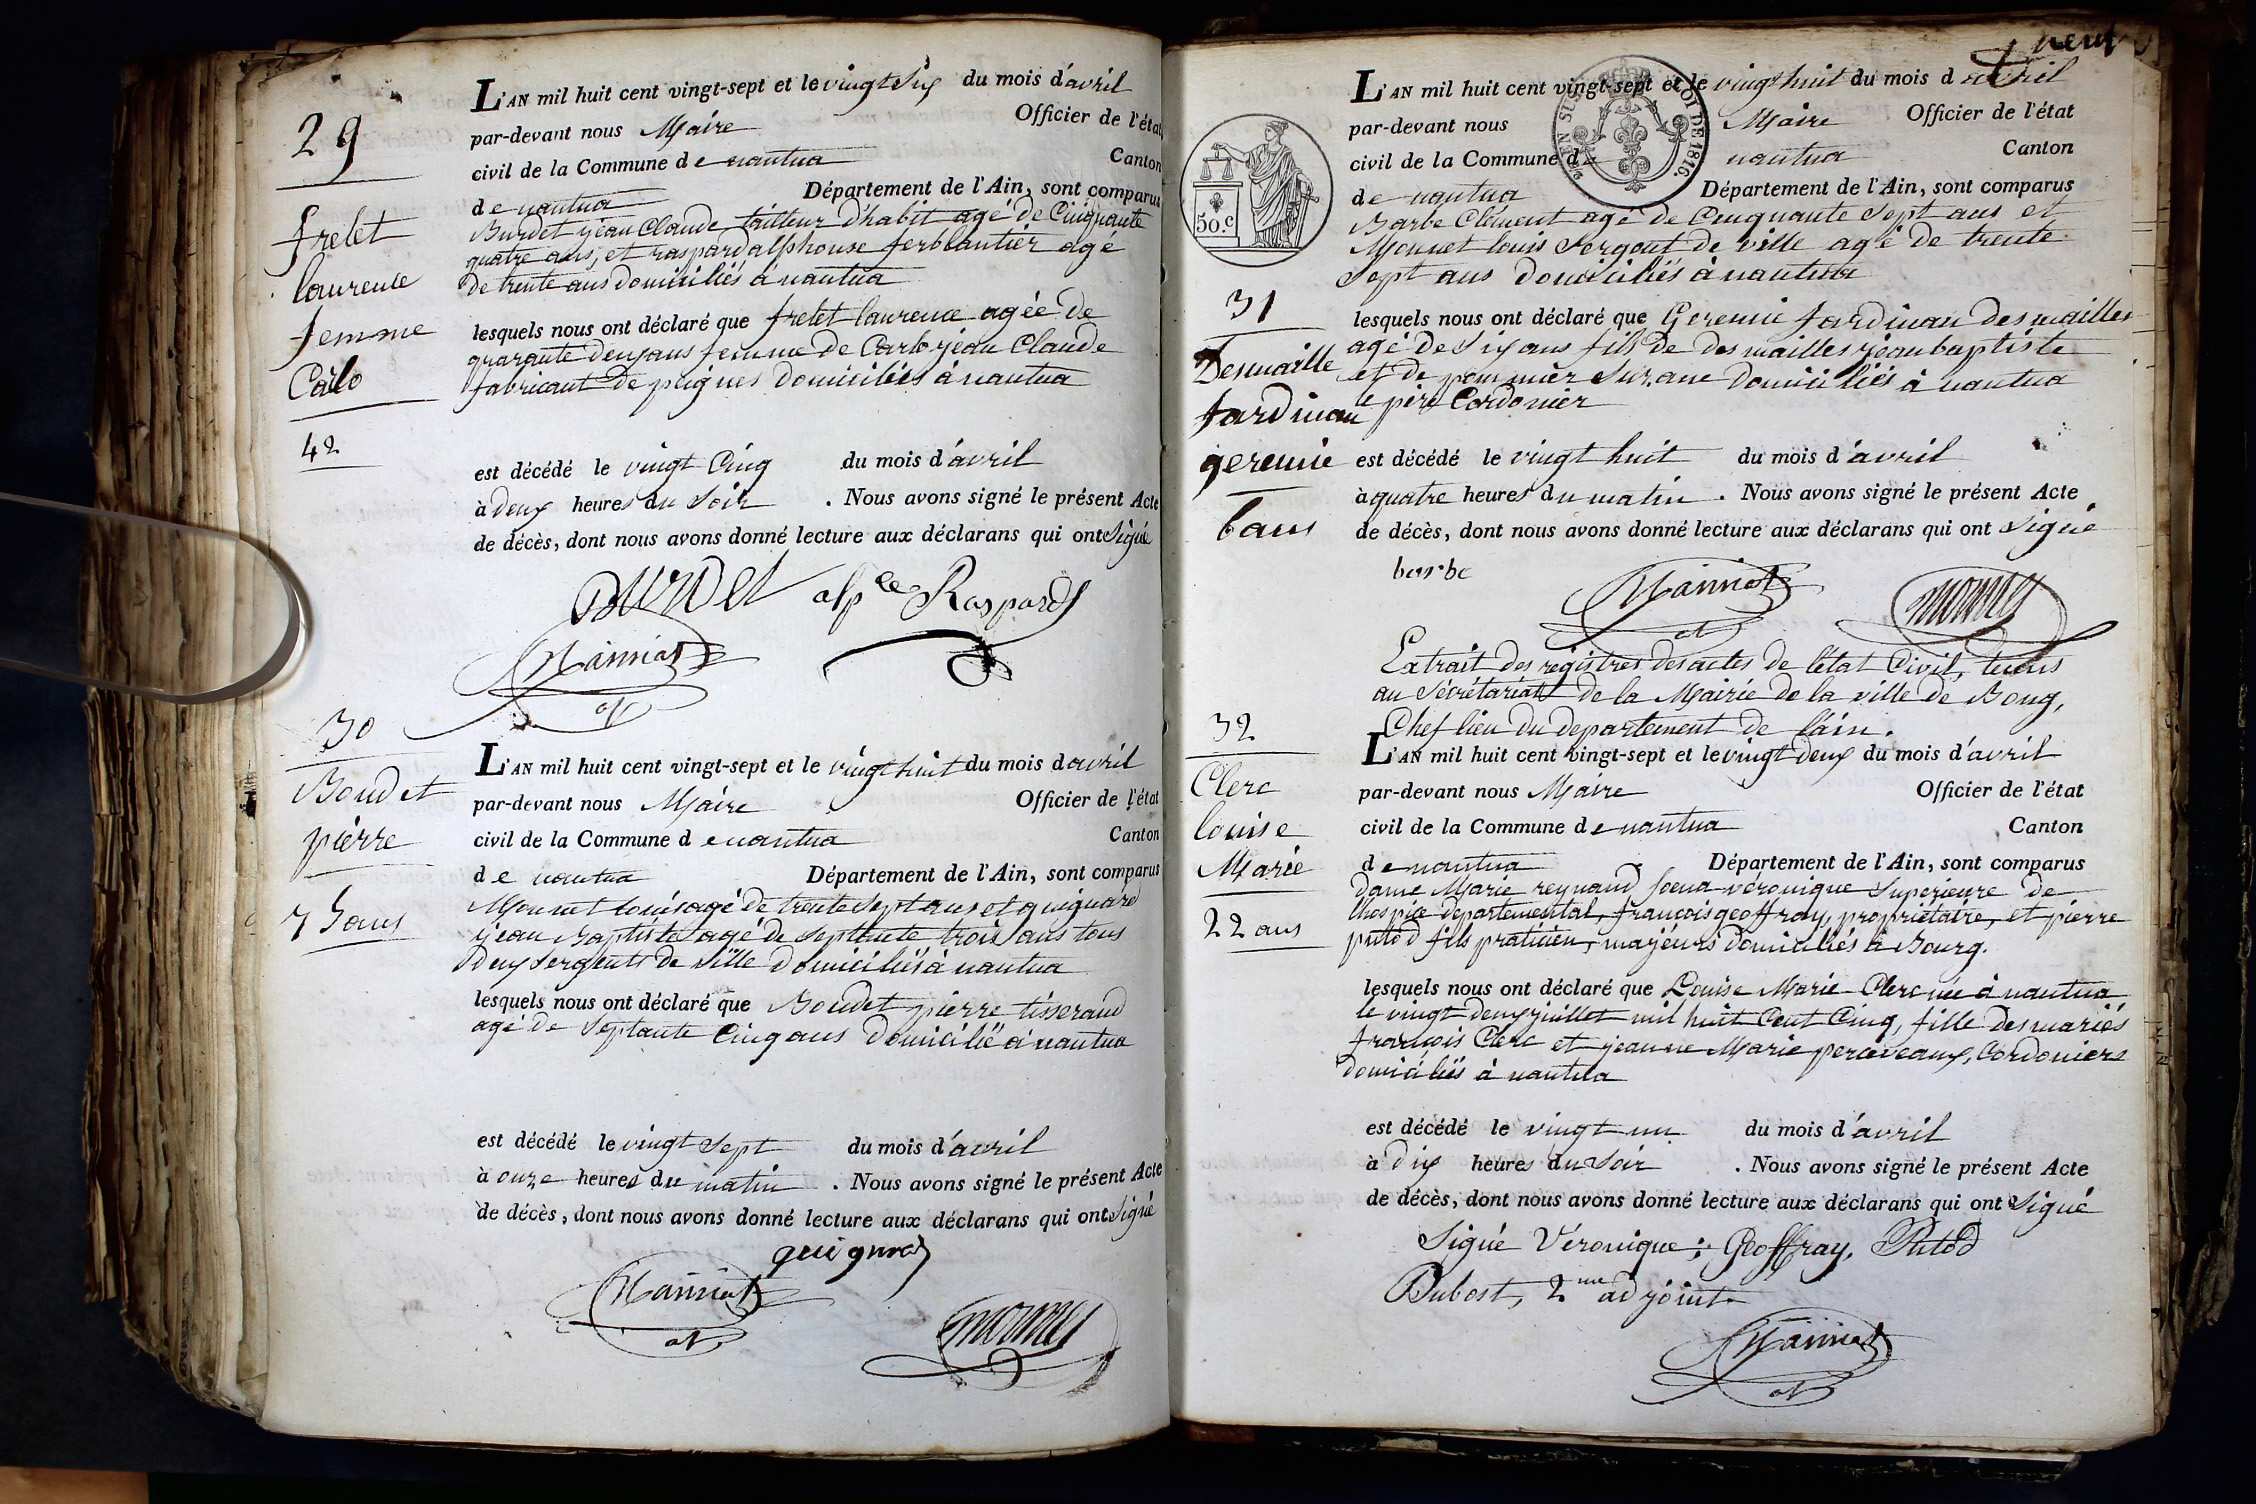 29
frelet
laurence
femme
Carlo
42
L'AN mil huit cent vingt-sept et le vingt six du mois d'avril
par-devant nous Maire Officier de l'état
civil de la Commune de nantua Canton
de nantua Département de l'Ain, sont comparus
Burdet jean Claude tailleur d'habit agé de Cinquante
quatre ans, et raspard alphonse ferblantier agé
de trente ans domiciliés à nantua
lesquels nous ont déclaré que frelet laurence agée de
quarante deux ans femme de Carlo jean Claude
fabricant de peignes domiciliés à nantua
est décédé le vingt Cinq du mois d'avril
à deux heures du Soir . Nous avons signé le présent Acte
de décès, dont nous avons donné lecture aux déclarans qui ont Signé
Burdet alp.ce Raspard
30
Boudet
pierre
75 ans
L'AN mil huit cent vingt-sept et le vingt huit du mois d avril
par-devant nous Maire Officier de l'état
civil de la Commune de nantua Canton
de nantua Département de l'Ain, sont comparus
Monnet louis agé de trente sept ans et quignard
jean Baptiste agé de Septante trois ans tous
deux Sergents de ville domiciliés à nantua
lesquels nous ont déclaré que Boudet pierre tisserand
agé de Septante Cinq ans domicilié à nantua
est décédé le vingt Sept du mois d'avril
à onze heures du matin . Nous avons signé le présent Acte
de décès, dont nous avons donné lecture aux déclarans qui ont Signé
quignard
monnet
neuf
50.c
31
Desmaille
fardinan
geremie
6 ans
L'AN mil huit cent vingt-sept et le vingt huit du mois d avril
par-devant nous Maire Officier de l'état
civil de la Commune de nantua Canton
de nantua Département de l'Ain, sont comparus
Barbe Clément agé de Cinquante Sept ans et
Monnet louis Sergent de ville agé de trente
Sept ans domiciliés à nantua
lesquels nous ont déclaré que Geremie fardinan desmailles
agé de Six ans fils de desmailles jean baptiste
et de pommier Suzane domiciliés à nantua
le père Cordonier
est décédé le vingt huit du mois d'avril
à quatre heures du matin . Nous avons signé le présent Acte
de décès, dont nous avons donné lecture aux déclarans qui ont Signé
barbe monnet
Extrait des registres des actes de l'état Civil, tenus
au Sécrétariat de la Mairie de la ville de Bourg,
Chef lieu du departement de l'ain.
32
Clerc
louise
Marie
22 ans
L'AN mil huit cent vingt-sept et le vingt deux du mois d'avril
par-devant nous Maire Officier de l'état
civil de la Commune de nantua Canton
de nantua Département de l'Ain, sont comparus
dame Marie reynaud soeur véronique Superieure de
l'hospice departemental, françois geoffray, propriétaire, et pierre
putod fils praticien, majeurs domiciliés à Bourg.
lesquels nous ont déclaré que Louise Marie Clerc née à nantua
le vingt deux juillet mil huit Cent Cinq, fille des mariés
françois Clerc et jeanne Marie perceveaux, Cordoniers
domiciliés à nantua
est décédé le vingt un du mois d'avril
à dix heures du Soir . Nous avons signé le présent Acte
de décès, dont nous avons donné lecture aux déclarans qui ont Signé
Signé Véronique; Geoffray, Putod
Dubost, 2me adjoint